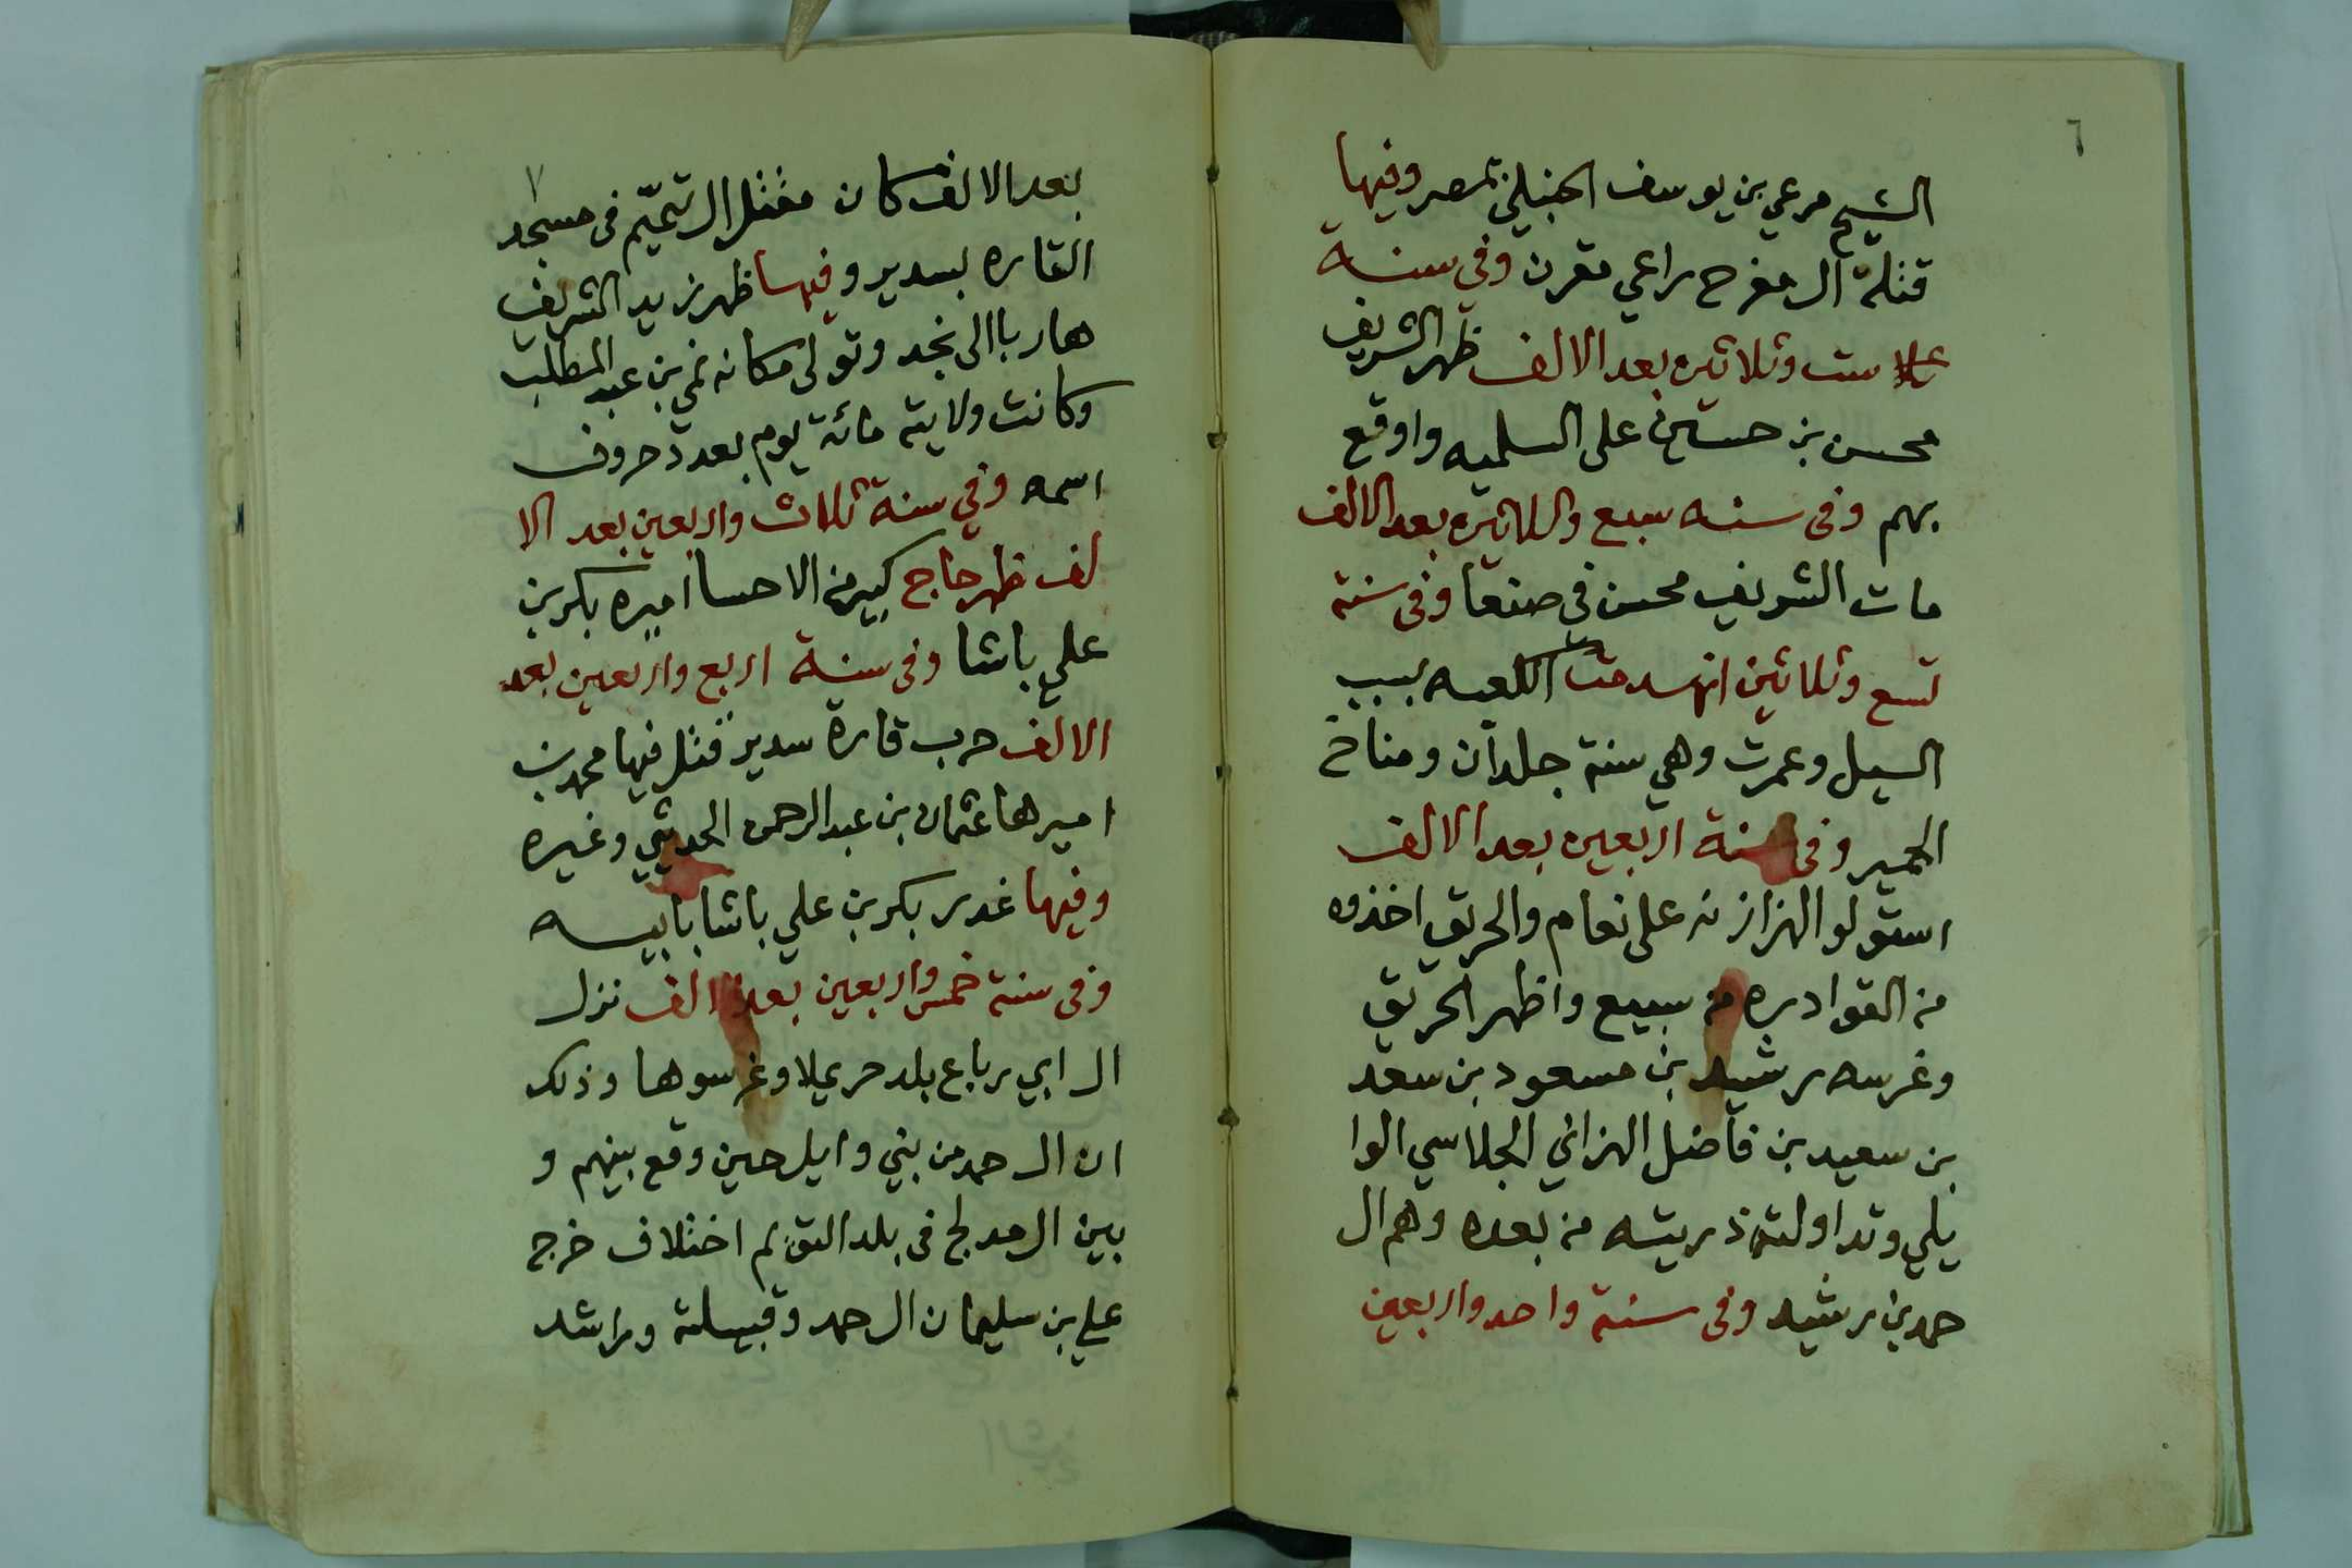 ٦
الشيخ مرعي بن يوسف الحنبلي بمصر وفيها
قتلة ال مفرح راعي مقرن وفي سنة
ست وثلاثين بعد الالف ظهر الشريف
محسن بن حسين على السلميه واوقع
بهم وفى سنه سبع وثلاثين بعد الالف
مات الشريف محسن فى صنعا وفى سنة
تسع وثلاثين انهدمت الكعبه بسبب
السيل وعمرت وهي سنة جلدان ومناخ
الحمير وفى سنة اربعين بعد الالف
استولو الهزازنه على نعام والحريق اخذوه
من القوادره من سبيع واظهر الحريق
وغرسه رشيد بن مسعود بن سعد
بن سعيد بن فاضل الهزاني الجلاسي الوا
يلي وتداولته ذريته من بعده وهم ال
حمد بن رشيد وفى سنة واحد واربعين
٧
بعد الالف كان مقتل ال تميّم فى مسجد
القاره بسدير وفيها ظهر زيد الشريف
هاربا الى نجد وتولى مكانه نمي بن عبد المطلب
وكانت ولايته مائة يوم بعدد حروف
اسمه وفي سنة ثلاث واربعين بعد الا
لف ظهر حاج كبير من الاحسا اميره بكر بن
علي باشا وفى سنة اربع واربعين بعد
الالف حرب قارة سدير قتل فيها محمد بن
اميرها عثمان بن عبد الرحمن الحديثي وغيره
وفيها غدر بكر بن علي باشا بابيه
وفى سنة خمس واربعين بعد الالف نزل
ال ابي رباع بلد حريملا وغرسوها وذلك
ان ال حمد من بني وايل حين وقع بينهم و
بين ال مدلج فى بلد التويم اختلاف خرج
علي بن سليمان ال حمد وقبيلته وراشد